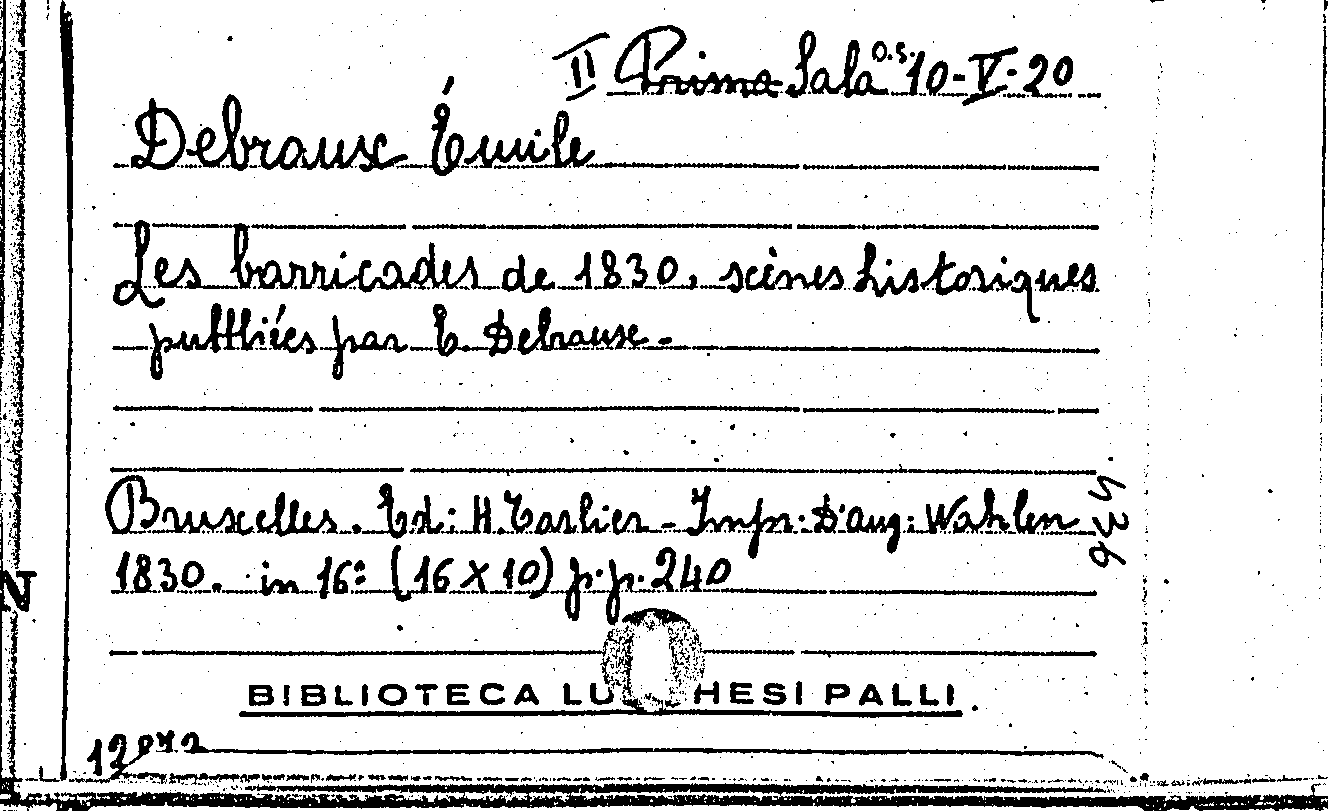 II Prima Sala O.S. 10-V-20
Debraux Émile
Les barricades de 1830, scènes historiques
publiées par E. Debraux.-
Bruxelles. Ed: H. Tarlier - Impr: D'aug: Wahlen
1830. in 16º (16 X 10) p.p. 240
BIBLIOTECA LU HESI PALLI
N